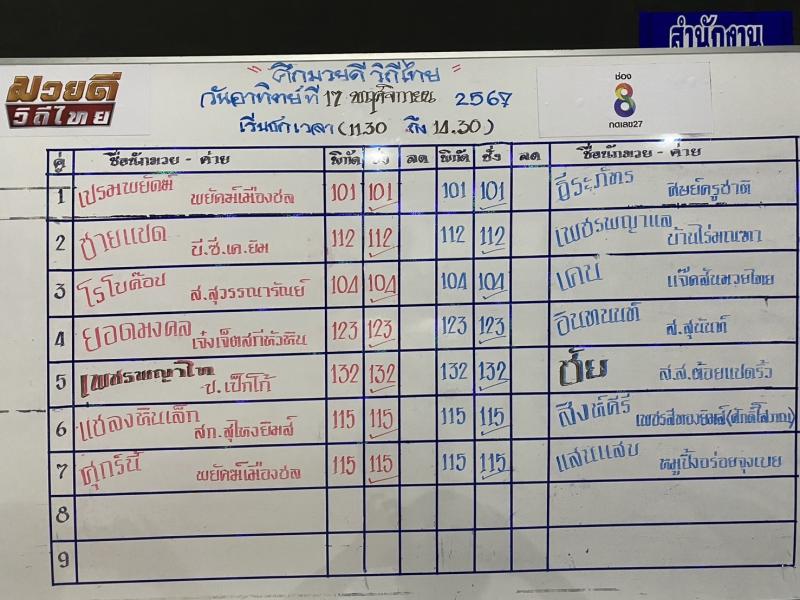 สำนักงาน
มวยดี
วิถีไทย
" ศึกมวยดี วิถีไทย "
วันอาทิตย์ที่ 17 พฤศจิกายน 2567
เริ่มชกเวลา (11.30 ถึง 14.30)
ช่อง
8
กดเลข27
คู่ ชื่อนักมวย - ค่าย พิกัด ชั่ง ลด พิกัด ชั่ง ลด ชื่อนักมวย - ค่าย
1 เปรมพยัคฆ์ พยัคฆ์เมืองชล 101 101 101 101 ธีระภัทร ศิษย์ครูชาติ
2 ชายแปด บี.ซี.เค.ยิม 112 112 112 112 เพชรพญาแล บ้านไร่มณฑา
3 โรโบค๊อป ส.สุวรรณารัณย์ 104 104 104 104 เคน แจ๊คสันมวยไทย
4 ยอดมงคล เจ๋งเจ็ตสกีหัวหิน 123 123 123 123 อินทนนท์ ส.สุนันท์
5 เพชรพญาไท ช.เป็กโก้ 132 132 132 132 ชัย ส.ส.ต้อยแปดริ้ว
6 แชลงหินเล็ก สก.สุไหงยิมส์ 115 115 115 115 สิงห์คีรี เพชรสีทองยิมส์(ศักดิ์โสภณ)
7 ศุกร์นี้ พยัคฆ์เมืองชล 115 115 115 115 แสนแสบ หมูปิ้งอร่อยจุงเบย
8
9